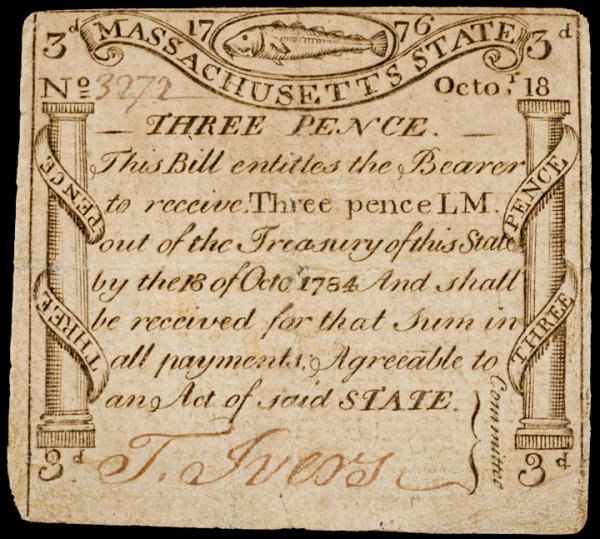 3d 1776 3d
MASSACHUSETTS STATE
No 3272 Octo.r 18
THREE PENCE.
This Bill entitles the Bearer
to receive Three pence LM.
out of the Treasury of this State
by the 18 of Octo.r 1784 And shall
be received for that Sum in
all payments, Agreeable to
an Act of said STATE.
THREE PENCE
THREE PENCE
Committee
T. Ivers
3d 3d